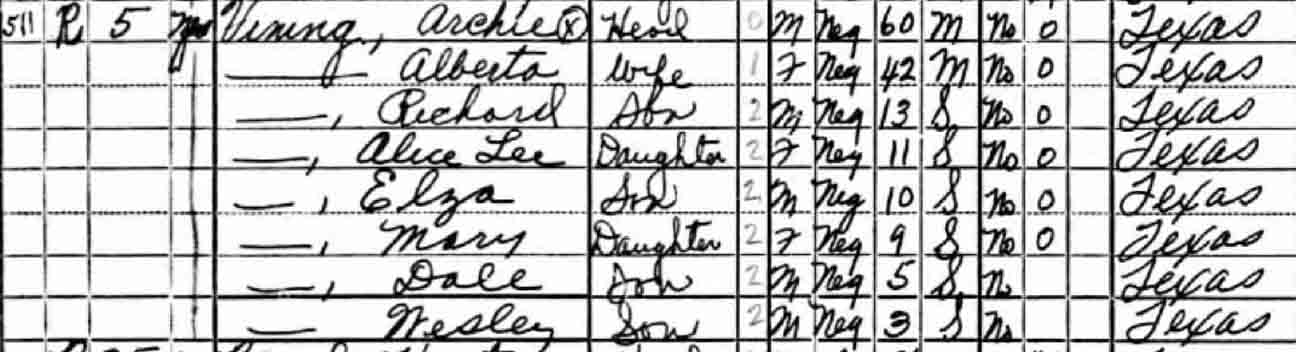 511 R 5 Vining, Archie ⓧ Head 0 M Neg 60 M No 0 Texas
—— Alberta Wife 1 F Neg 42 M No 0 Texas
——, Richard Son 2 M Neg 13 S No 0 Texas
——, Alice Lee Daughter 2 F Neg 11 S No 0 Texas
——, Elza Son 2 M Neg 10 S No 0 Texas
——, Mary Daughter 2 F Neg 9 S No 0 Texas
——, Dale Son 2 M Neg 5 S No Texas
—— Wesley Son 2 M Neg 3 S No Texas